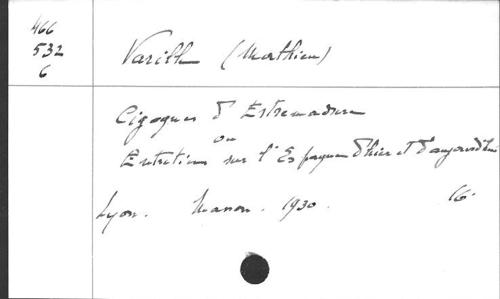 466
532
6
Varille (Mathieu)
Cigognes d'Estremadure
ou
Entretiens sur l'Espagne d'hier et d'aujourd'hui
Lyon. Masson. 1930. 16.